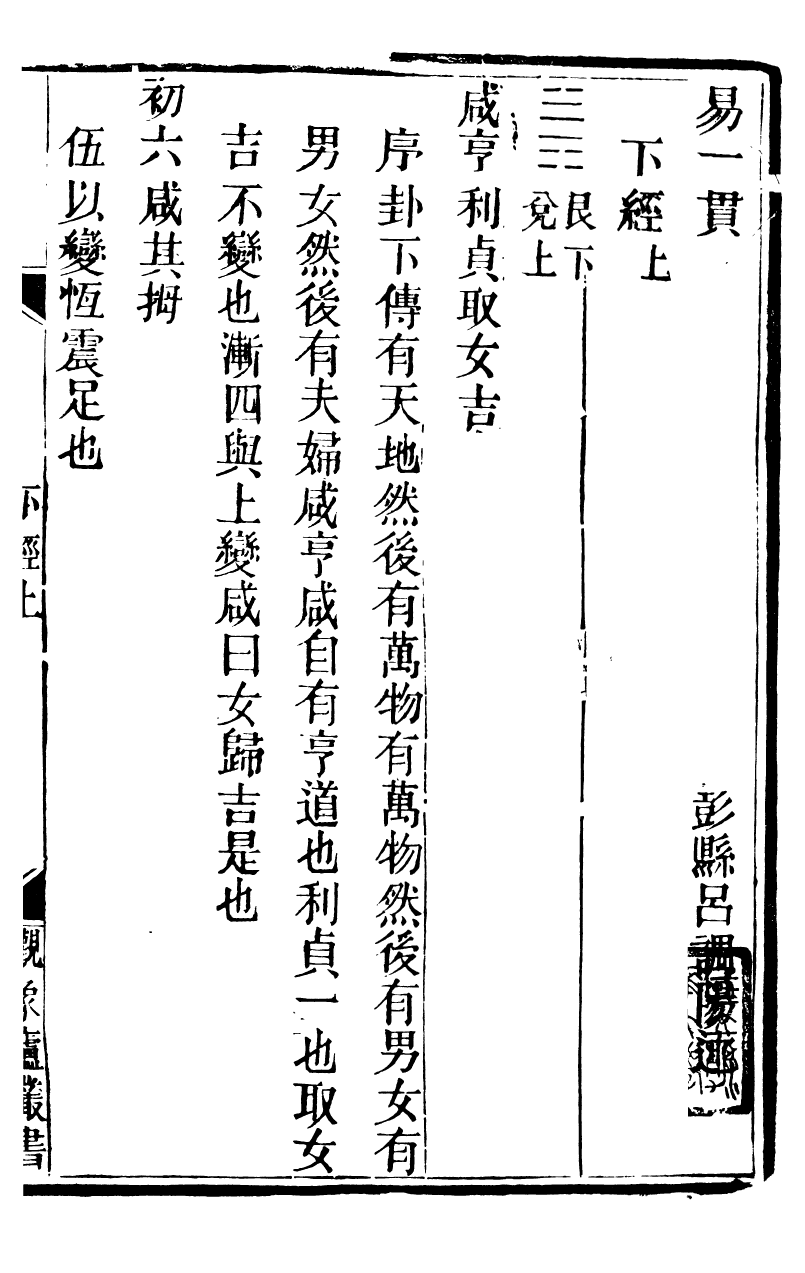 易一貫
彭縣呂調陽述
下經上
艮下
兌上
咸亨利貞取女吉
序卦下傳有天地然後有萬物有萬物然後有男女有
男女然後有夫婦咸亨咸自有亨道也利貞一也取女
吉不變也漸四與上變咸曰女歸吉是也
初六咸其拇
伍以變恆震足也
下經上
觀象廬叢書